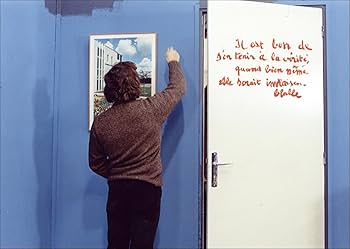 Il est bon de
s'en tenir à la vérité,
quand bien même
elle serait